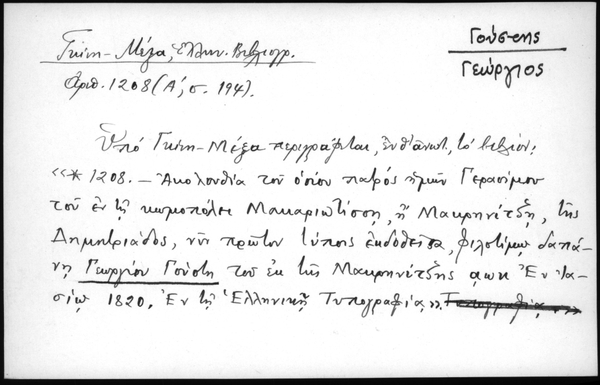 Γούστης
Γεώργιος
Γκίνη-Μέξα, Ἑλλην. Βιβλιογρ.
Ἀριθ. 1208 (Α΄, σ. 194).
Ὑπό Γκίνη-Μέξα περιγράφεται, ἐνθ' ἀνωτ., τό βιβλίον:
«* 1208. — Ἀκολουθία τοῦ ὁσίου πατρός ἡμῶν Γερασίμου
τοῦ ἐν τῇ κωμοπόλει Μακαριωτίσσῃ, ἤ Μακρηνίτζῃ, τῆς
Δημητριάδος, νῦν πρῶτον τύποις ἐκδοθεῖσα, φιλοτίμῳ δαπά-
νῃ Γεωργίου Γούστη τοῦ ἐκ τῆς Μακρηνίτζης αωκ Ἐν Ἰα-
σίῳ 1820. Ἐν τῇ Ἑλληνικῇ Τυπογραφίᾳ».